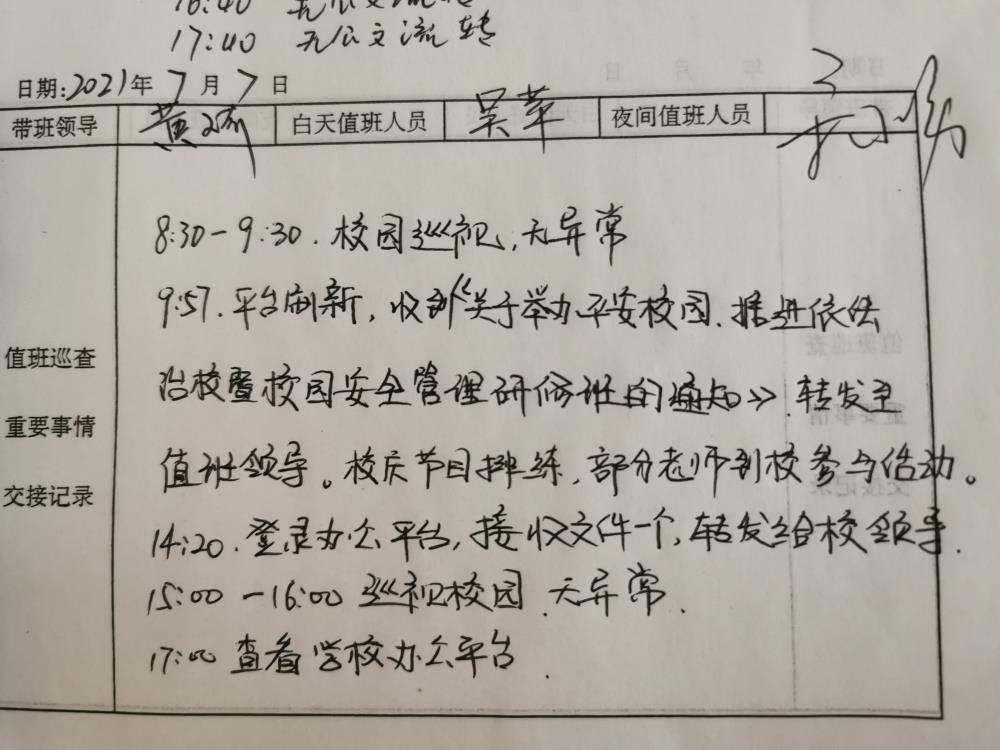 16:40 无公文流转
17:40 无公文流转
日期:2021年7月7日
带班领导 黄 白天值班人员 吴苹 夜间值班人员
8:30-9:30.校园巡视,无异常
9:57.平台刷新,收到《关于举办平安校园、推进依法
值班巡查
治校暨校园安全管理研修班的通知》.转发至
重要事情
值班领导。校庆节目排练,部分老师到校参与活动。
交接记录
14:20.登录办公平台,接收文件一个,转发给校领导.
15:00-16:00巡视校园 无异常.
17:00查看学校办公平台.